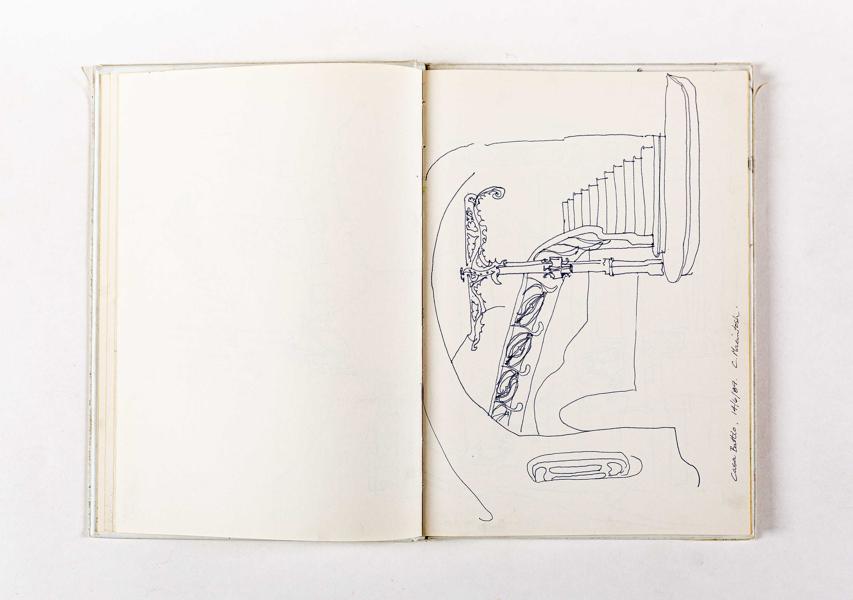 Casa Battlo, 14/6/89. C. Macintosh.